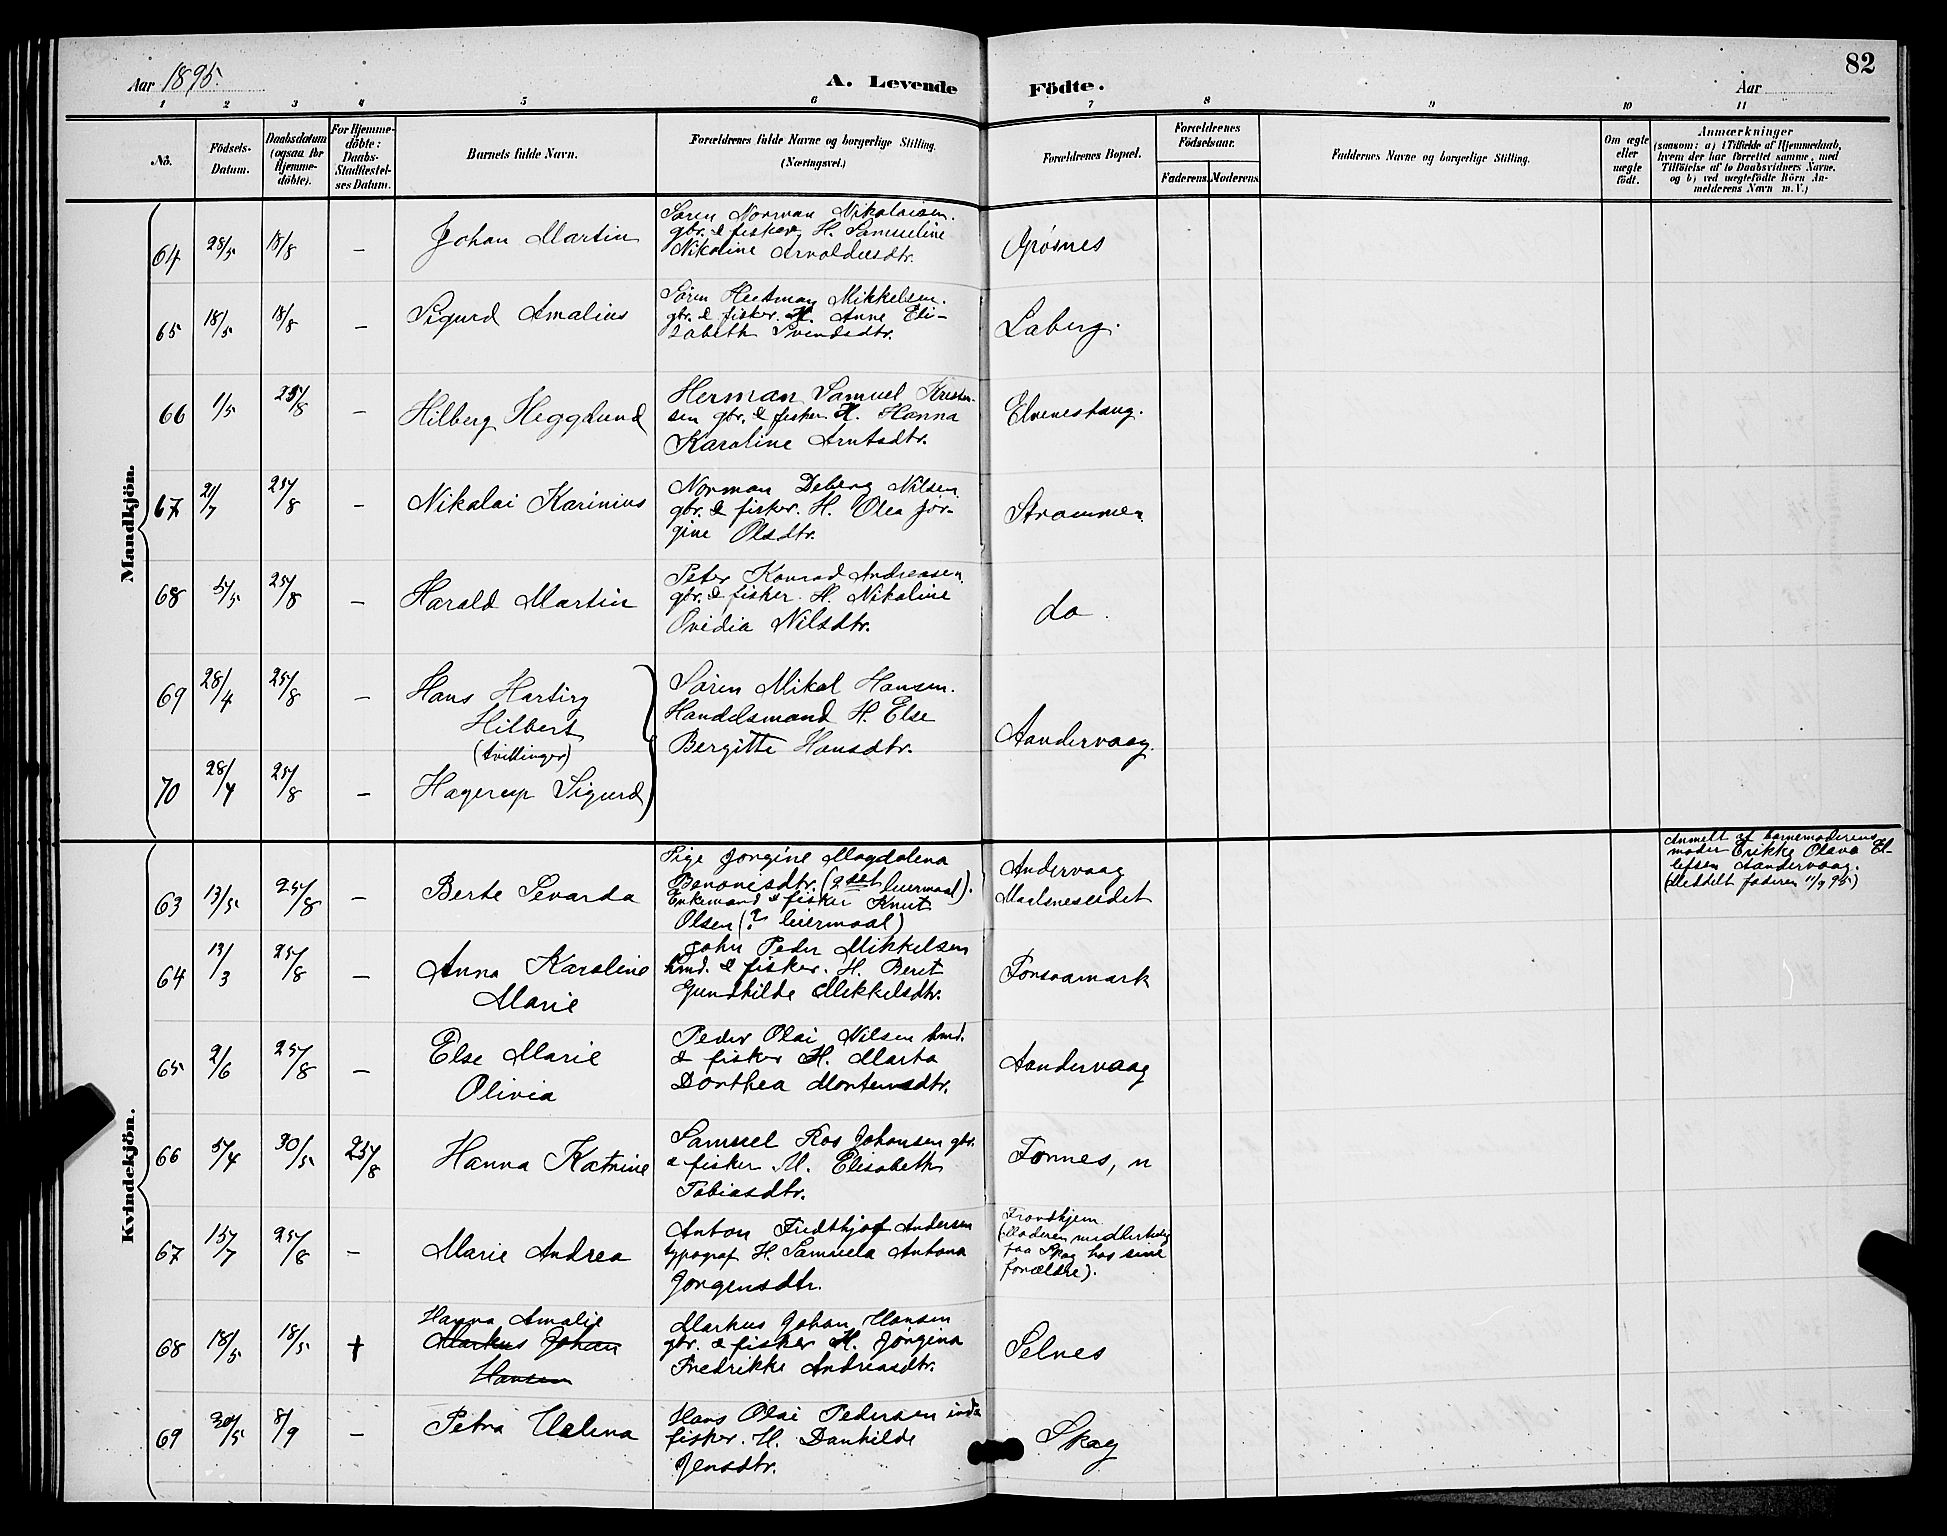 Aar 1895. A. Levende Födte. Aar 82
1 2 3 4 5 6 7 8 9 10 11
No.
Födsels-
Datum.
Daabsdatum
(ogsaa for
Hjemme-
döbte).
For Hjemme-
döbte:
Daabs-
Stadfæstel-
ses Datum.
Barnets fulde Navn.
Forældrenes fulde Navne og borgerlige Stilling.
(Næringsvei.)
Forældrenes Bopæl.
Forældrenes
Födselsaar.
Faderens. Moderens.
Faddernes Navne og borgerlige Stilling.
Om ægte
eller
uægte
födt.
Anmærkninger
(saasom: a) i Tilfælde af Hjemmedaab,
hvem der har forrettet samme, med
Tilföielse af to Daabsvidners Navne,
og b) ved uægtefödte Börn An-
melderens Navn m. V.)
Mandkjön.
64 28/5 18/8 — Johan Martin
Søren Norman Nikolaisen.
gbr. & fisker H. Samueline
Nikoline Arnoldusdtr.
Grøsnes
65 18/5 18/8 — Sigurd Amalius
Søren Heitman Mikkelsen.
gbr. & fisker. H. Anne Eli-
zabeth Svendsdtr.
Laberg.
66 1/5 25/8 — Hilberg Hegglund
Herman Samuel Kristen-
sen gbr. & fisker H. Hanna
Karoline Arntsdtr.
Elveneshaug.
67 21/7 25/8 — Nikolai Karinius
Norman Deberg Nilsen
gbr. & fisker. H. Olea Jør-
gine Olsdtr.
Strammen
68 5/5 25/8 — Harald Martin
Peter Konrad Andreasen
gbr. & fisker. H. Nikoline
Ovidia Nilsdtr.
do.
69 28/4 25/8 — Hans Hartvig
Hilbert
(tvillinger)
Søren Mikal Hansen.
Handelsmand H. Else
Bergitte Hansdtr.
Aandervaag.
70 28/4 25/8 — Hagerup Sigurd
Kvindekjön.
63 13/5 25/8 — Berte Sevarda
Pige Jørgine Magdalena
Benonisdtr. (2det leiermaal).
Enkemand & fisker Knut
Olsen (? leiermaal)
Andervaag
Maalsneseidet
Anmelt af barnemoderens
moder Erikke Olava El-
lefsen Aandervaag.
(Meddelt faderen 11/9 95)
64 13/3 25/8 — Anna Karoline
Marie
John Peder Mikkelsen
hmd. & fisker. H. Berit
Gunhilde Mikkelsdtr.
Fonsaamark
65 2/6 25/8 — Else Marie
Olivia
Peder Olai Nilsen hmd.
& fisker H. Marta
Dorthea Mortensdtr.
Aandervaag
66 5/4 30/5 25/8 Hanna Katrine
Samuel Ros Johansen gbr.
& fisker M. Elisabeth
Tobiasdtr.
Fornes, n
67 15/7 25/8 — Marie Andrea
Anton Fridthjof Andersen
typograf H. Samuela Antona
Jørgensdtr.
Trondhjem
(Moderen midlertidig
paa Skog hos sine
forældre).
68 18/5 18/5 + Hanna Amalie
Markus Johan
Hansen
Markus Johan Hansen
gbr. & fisker H. Jørgina
Fredrikke Andreasdtr.
Selnes
69 30/5 8/9 — Petra Helena
Hans Olai Pedersen inds
fisker. H. Danhilde
Jensdtr.
Skog